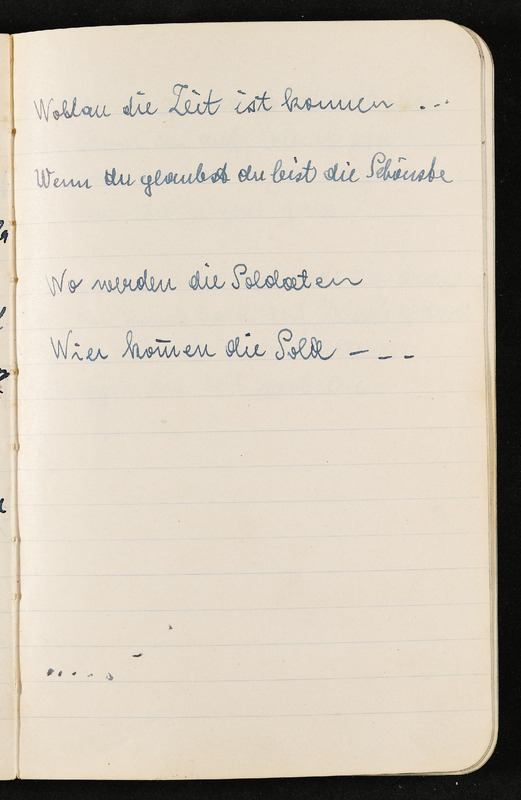 Wohlau die Zeit ist kommen ...
Wenn du glaubst du bist die Schönste
Wo werden die Soldaten
Wier kom̄en die Sold – – –